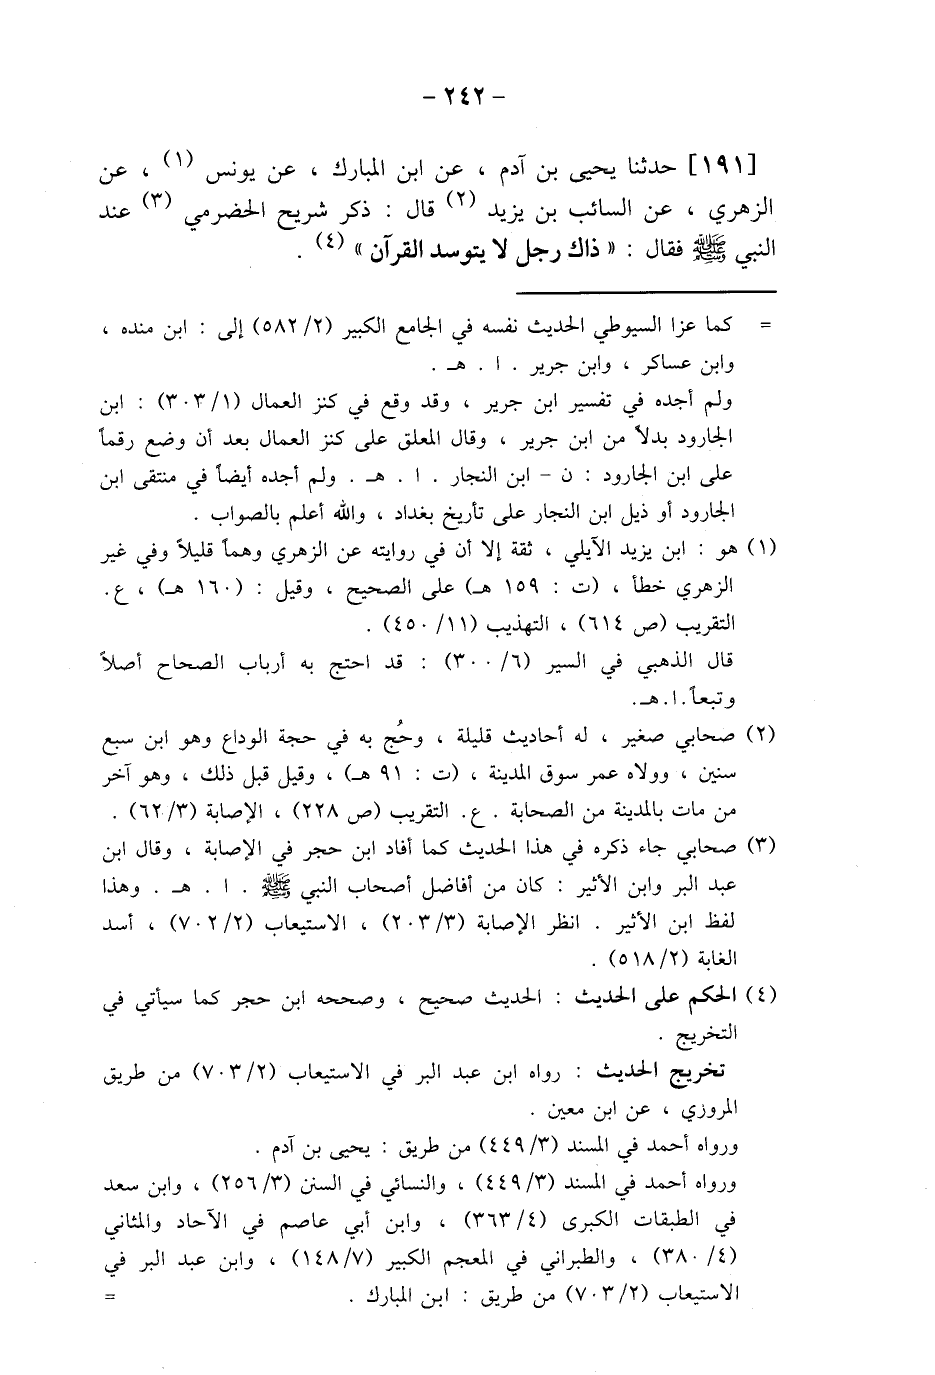 - ٢٤٢ -
[١٩١] حدثنا يحيى بن آدم ، عن ابن المبارك ، عن يونس (١) ، عن
الزهري ، عن السائب بن يزيد (٢) قال : ذكر شريح الحضرمي (٣) عند
النبي ﷺ فقال : « ذاك رجل لا يتوسد القرآن » (٤) .
= كما عزا السيوطي الحديث نفسه في الجامع الكبير (٥٨٢/٢) إلى : ابن منده ،
وابن عساكر ، وابن جرير . ا . هـ .
ولم أجده في تفسير ابن جرير ، وقد وقع في كنز العمال (٣٠٣/١) : ابن
الجارود بدلاً من ابن جرير ، وقال المعلق على كنز العمال بعد أن وضع رقماً
على ابن الجارود : ن - ابن النجار . ا . هـ . ولم أجده أيضاً في منتقى ابن
الجارود أو ذيل ابن النجار على تأريخ بغداد ، والله أعلم بالصواب .
(١) هو : ابن يزيد الآيلي ، ثقة إلا أن في روايته عن الزهري وهماً قليلاً وفي غير
الزهري خطأ ، (ت : ١٥٩ هـ) على الصحيح ، وقيل : (١٦٠ هـ) ، ع.
التقريب (ص ٦١٤) ، التهذيب (٤٥٠/١١) .
قال الذهبي في السير (٣٠٠/٦) : قد احتج به أرباب الصحاح أصلاً
وتبعاً.ا.هـ.
(٢) صحابي صغير ، له أحاديث قليلة ، وحُج به في حجة الوداع وهو ابن سبع
سنين ، وولاه عمر سوق المدينة ، (ت : ٩١ هـ) ، وقيل قبل ذلك ، وهو آخر
من مات بالمدينة من الصحابة . ع. التقريب (ص ٢٢٨) ، الإصابة (٦٢/٣) .
(٣) صحابي جاء ذكره في هذا الحديث كما أفاد ابن حجر في الإصابة ، وقال ابن
عبد البر وابن الأثير : كان من أفاضل أصحاب النبي ﷺ . ا . هـ . وهذا
لفظ ابن الأثير . انظر الإصابة (٢٠٣/٣) ، الاستيعاب (٧٠٢/٢) ، أسد
الغابة (٥١٨/٢) .
(٤) الحكم على الحديث : الحديث صحيح ، وصححه ابن حجر كما سيأتي في
التخريج .
تخريج الحديث : رواه ابن عبد البر في الاستيعاب (٧٠٣/٢) من طريق
المروزي ، عن ابن معين .
ورواه أحمد في المسند (٤٤٩/٣) من طريق : يحيى بن آدم .
ورواه أحمد في المسند (٤٤٩/٣) ، والنسائي في السنن (٢٥٦/٣) ، وابن سعد
في الطبقات الكبرى (٣٦٣/٤) ، وابن أبي عاصم في الآحاد والمثاني
(٣٨٠/٤) ، والطبراني في المعجم الكبير (١٤٨/٧) ، وابن عبد البر في
الاستيعاب (٧٠٣/٢) من طريق : ابن المبارك . =